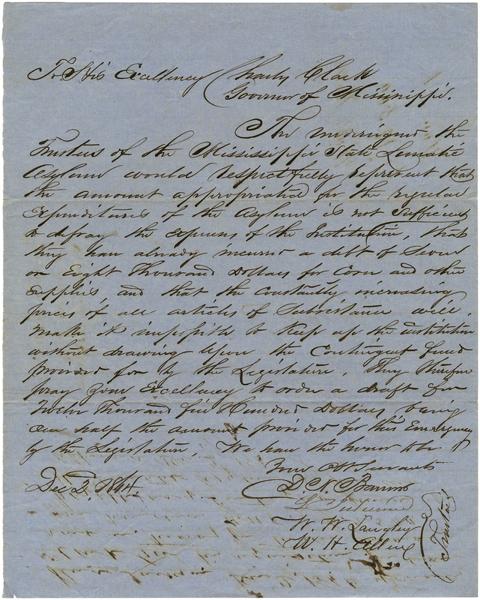 To His Excellency Charles Clark
Governor of Mississippi.
The undersigned the
Trustees of the Mississippi State Lunatic
Asylum would respectfully represent that
the amount appropriated for the regular
Expenditures of the Asylum is not sufficient
to defray the expenses of the Institution, that
they have already incurred a debt of Seven
or Eight Thousand Dollars for Corn and other
supplies, and that the constantly increasing
prices of all articles of Subsistance will
make it impossible to keep up the institution
without drawing upon the Contingent fund
provided for by the Legislature. They therefore
pray your Excellency to order a draft for
Twelve Thousand five Hundred Dollars, being
one half the amount provided for this Emergency
by the Legislature. We have the honor to be
Your Obt Servants
Dec 2. 1864.
D. N. Barrows
W. H. Langley
W. H. Allen
Trustees